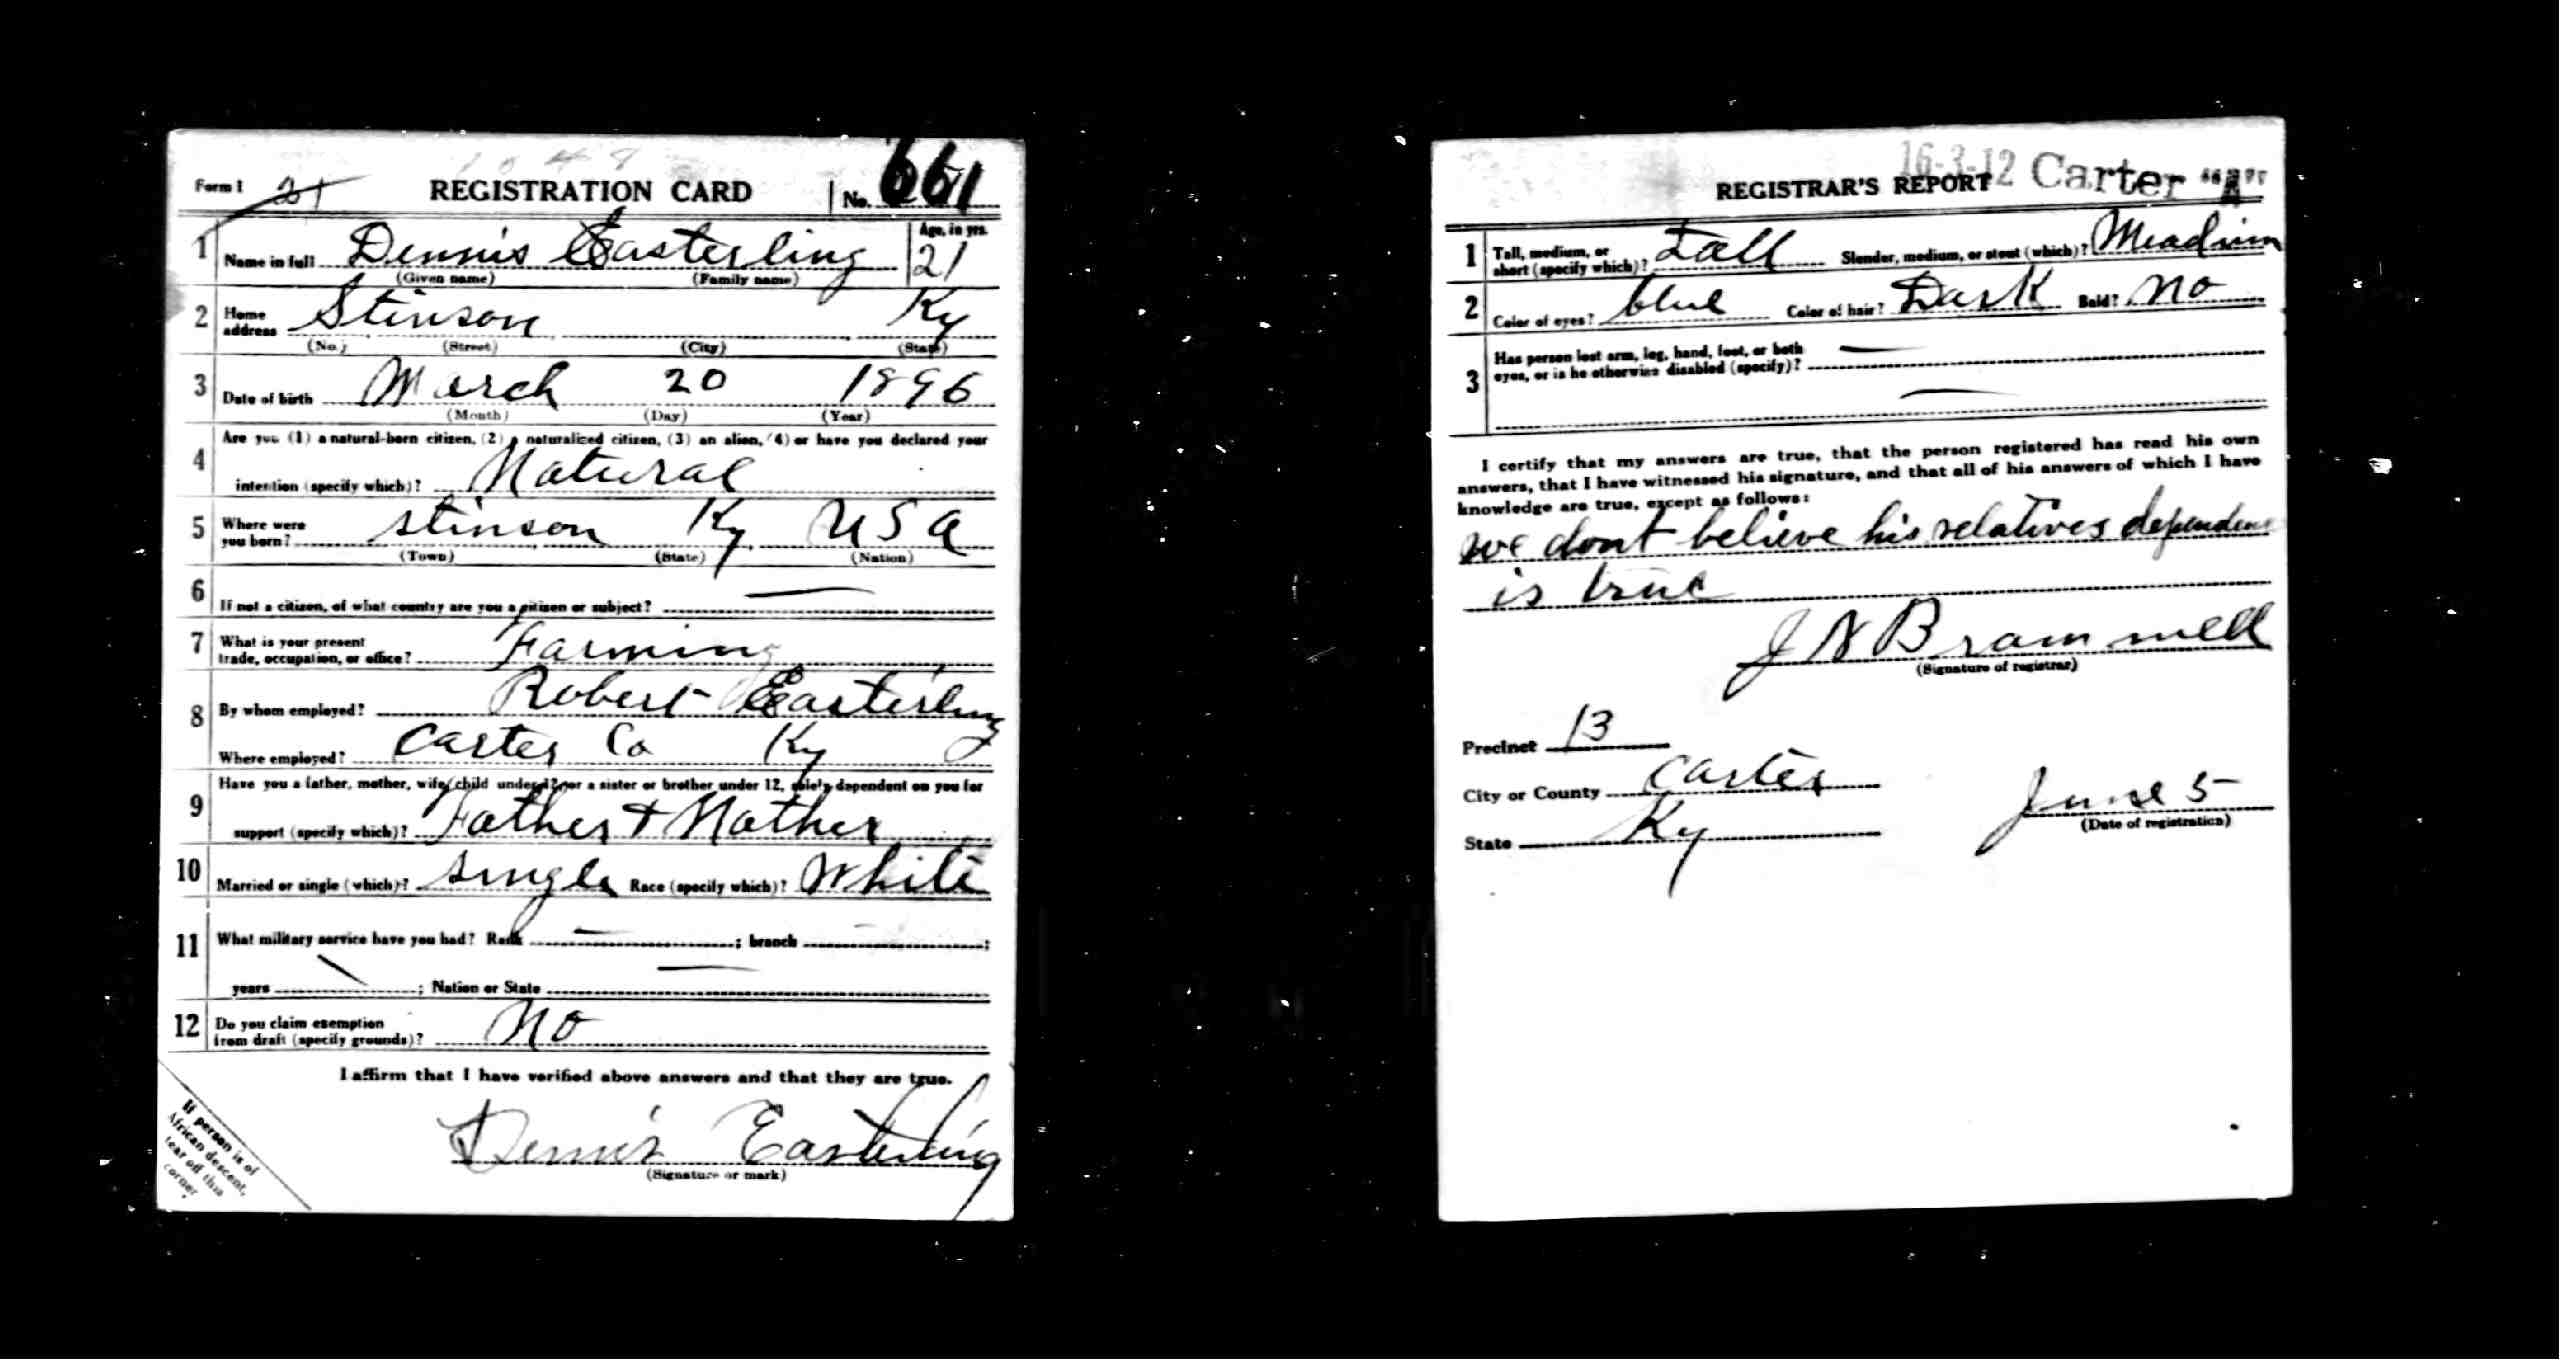 Form 1 21 REGISTRATION CARD No. 661
1 Name in full Dennis Easterling Age, in yrs. 21
(Given name) (Family name)
2 Home address Stinson Ky
(No.) (Street) (City) (State)
3 Date of birth March 20 1896
(Month) (Day) (Year)
4 Are you (1) a natural-born citizen, (2) a naturalized citizen, (3) an alien, (4) or have you declared your
intention (specify which)? Natural
5 Where were you born? Stinson Ky USA
(Town) (State) (Nation)
6 If not a citizen, of what country are you a citizen or subject? —
7 What is your present trade, occupation, or office? Farming
8 By whom employed? Robert Easterling
Where employed? Carter Co Ky
9 Have you a father, mother, wife, child under 12, or a sister or brother under 12, solely dependent on you for
support (specify which)? Father + Mother
10 Married or single (which)? Single Race (specify which)? White
11 What military service have you had? Rank — ; branch — ;
years — ; Nation or State —
12 Do you claim exemption from draft (specify grounds)? No
I affirm that I have verified above answers and that they are true.
Dennis Easterling
(Signature or mark)
If person is of
African descent,
tear off this
corner
16-3-12 Carter "A"
REGISTRAR'S REPORT
1 Tall, medium, or short (specify which)? Tall Slender, medium, or stout (which)? Meadium
2 Color of eyes? blue Color of hair? Dark Bald? No
3 Has person lost arm, leg, hand, foot, or both
eyes, or is he otherwise disabled (specify)? —
—
I certify that my answers are true, that the person registered has read his own
answers, that I have witnessed his signature, and that all of his answers of which I have
knowledge are true, except as follows:
we dont believe his relatives dependence
is true
J N Brammell
(Signature of registrar)
Precinct 13
City or County Carter
State Ky
June 5
(Date of registration)